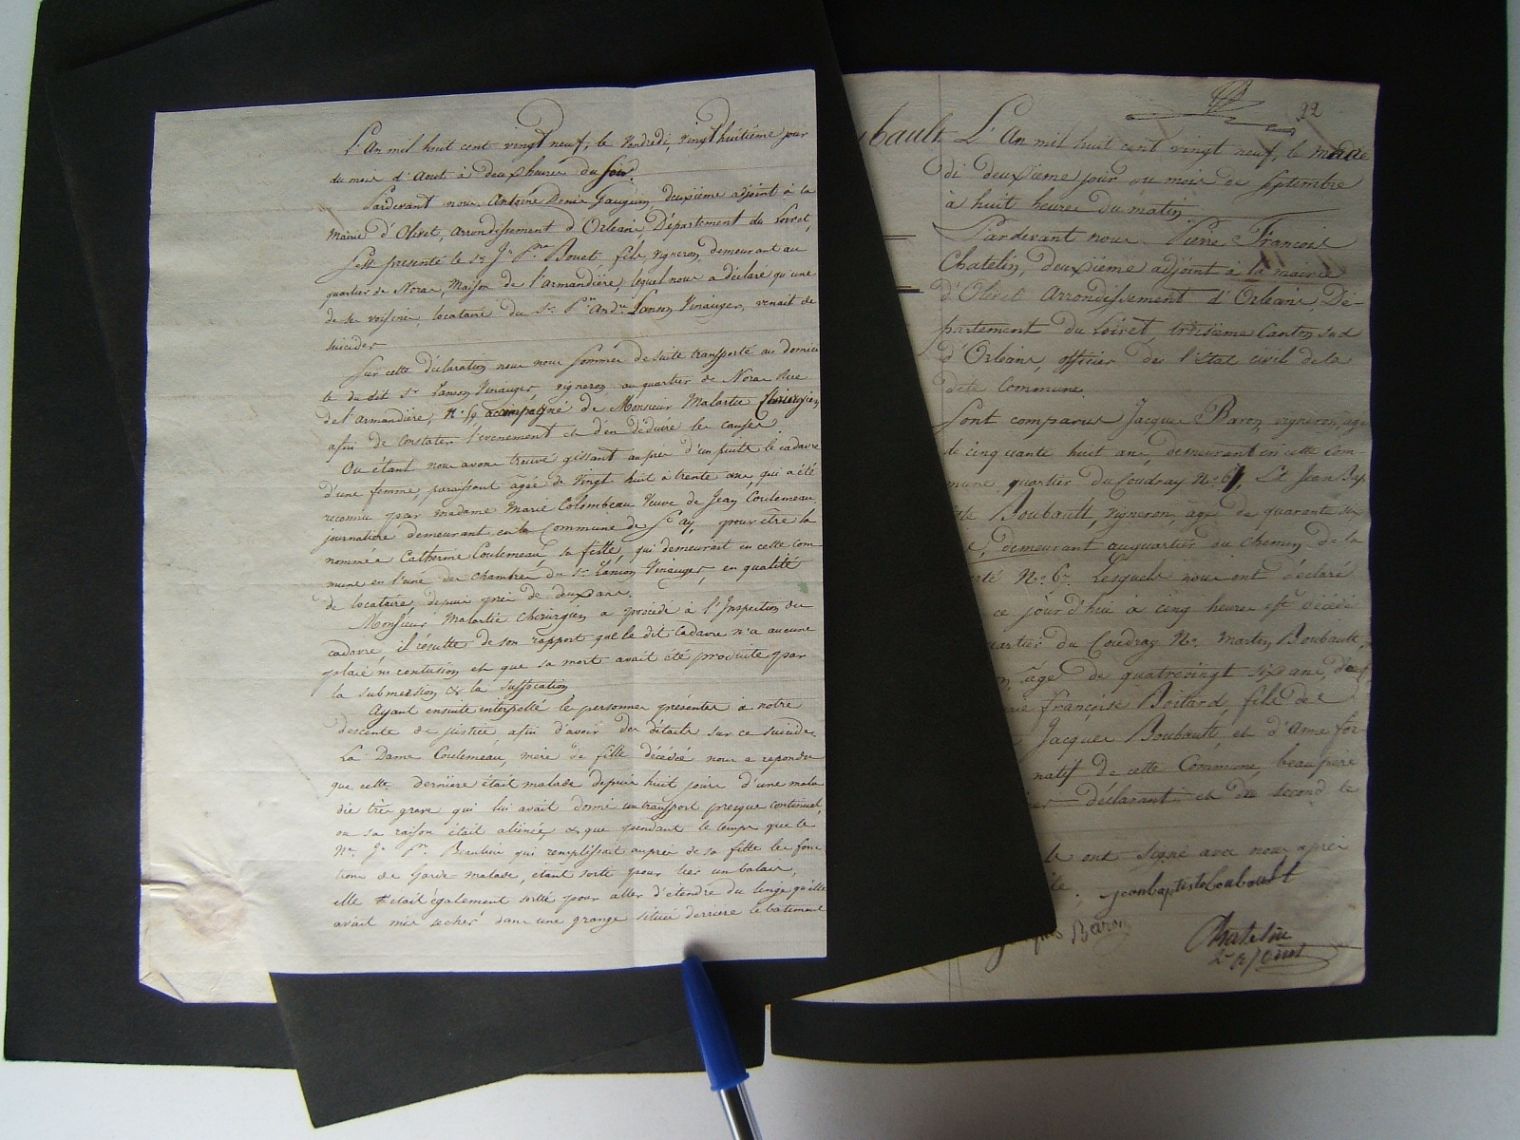 L'An mil huit cent vingt neuf, le vendredi, vingt huitième jour
du mois d'Aout à deux heures du soir.
Pardevant nous Antoine Denis Gauguin, deuxième adjoint à la
Mairie d'Olivet, arrondissement d'Orleans, Département du Loiret,
S'est presenté le Sr. Jn. Pre. Bouet fils, vigneron demeurant au
quartier de Norae, Maison de l'armandière, lequel nous a déclaré qu'une
de ses voisines, locataire du Sr. Pre. Andre. Sanson Vinauger, venait de
suicider
Sur cette déclaration nous nous sommes de suite transporté au domici
le du dit Sr. Sanson Vinauger vigneron au quartier de Norae Rue
de l'armandière, N°. 9 accompagné de Monsieur Malartie Chirurgien
afin de constater l'evenement et d'en déduire les causes.
Ou étant nous avons trouvé gissant au près d'un puits le cadavre
d'une femme, paraissant agée de vingt huit à trente ans, qui a été
reconnu par madame Marie Colombeau Veuve de Jean Coulemeau,
journalière demeurant en la Commune de St. ay, pour être la
nommée Catherine Coulemeau sa fille, qui demeurait en cette com
mune en l'une des chambres du Sr. Sanson Vinauger, en qualité
de locataire, depuis près de deux ans.
Monsieur Malartie Chirurgien a procédé à l'Inspection du
cadavre, il résulte de son rapport que le dit cadavre n'a aucune
plaie ni contusion et que sa mort avait été produite par
la submersion & la suffocation
Ayant ensuite interpellé les personnes présentes à notre
descente de justice afin d'avoir des détails sur ce suicide
La Dame Coulemeau, mère de fille décédée nous a repondu
que cette dernière était malade depuis huit jours d'une mala
die très grave qui lui avait donné un transport presque continuel,
ou sa raison était alienée, & que pendant le temps que le
Né. Jn. Pre. Beaulieu qui remplissait auprès de sa fille les fonc
tions de Garde malade, étant sorti pour lier un balai,
elle était également sortie pour aller d'étendre du linge qu'elle
avait mis secher dans une grange située derrière le batiment
32
ubault L'An mil huit cent vingt neuf, le mercre
di deuxième jour du mois de septembre
à huit heures du matin
Pardevant nous Pierre François
Chatelin, deuxième adjoint à la mairie
d'Olivet Arrondissement d'Orleans, Dé-
partement du Loiret, troisieme Canton sud
d'Orleans, officier de l'Etat civil de la
dite Commune.
Sont comparus Jacques Baron vigneron, agé
de cinquante huit ans, demeurant en cette Com-
mune quartier du Coudray N°. 6. Et Jean Bap
Boubault, vigneron, agé de quarente
demeurant au quartier du chemin de la
N°. 6. Lesquels nous ont déclaré
ce jour d'hui à cinq heures est décédé
quartier du Coudray N°. Martin Boubault,
agé de quatrevingt six ans,
françoise Boitard, fils de
Jacques Boubault et d'Anne
natif de cette Commune, beaupère
déclarant et du second le
ont signé avec nous après
jean baptiste boubault
Baron
Chatelin
2e. adjoint